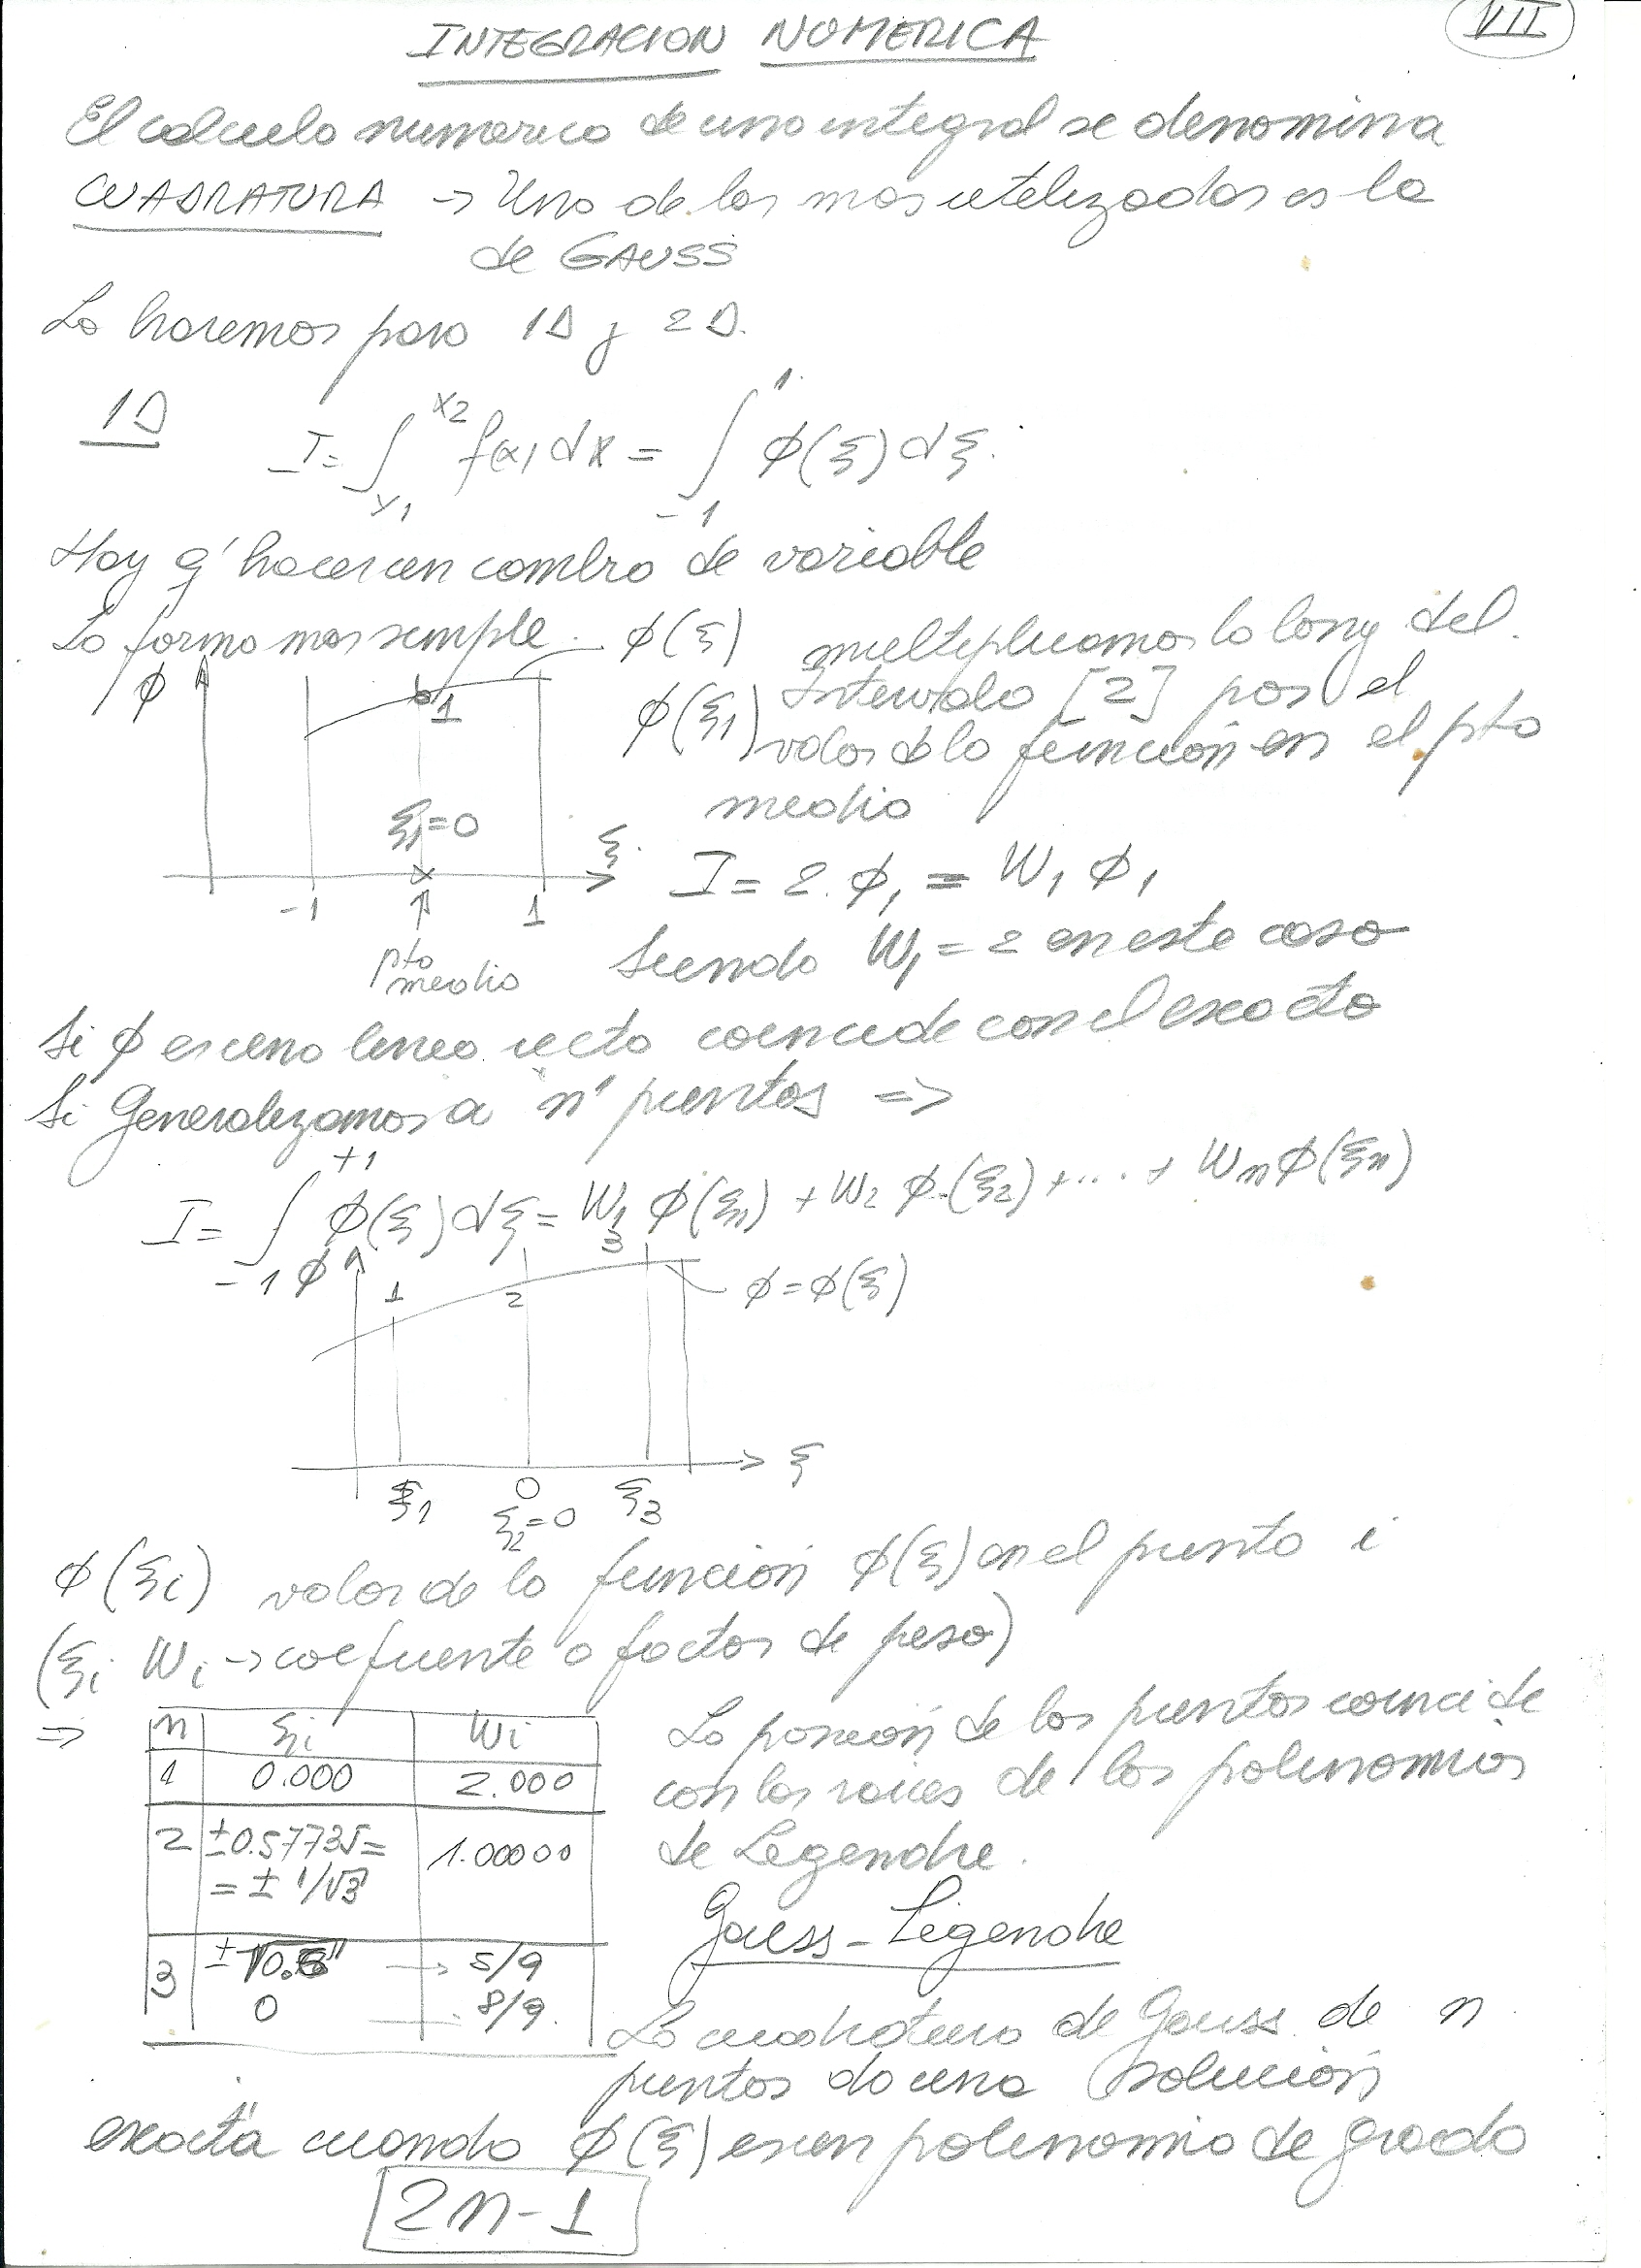 VII
INTEGRACION NUMERICA
El calculo numerico de una integral se denomina
CUADRATURA → Una de las mas utilizadas es la
de GAUSS
Lo haremos para 1D y 2D.
1D I = ∫_{x1}^{x2} f(x) dx = ∫_{-1}^{1} φ(ξ) dξ.
Hay q' hacer un cambio de variable
La forma mas simple. φ(ξ) multiplicamos la long del
φ φ(ξ1) Intervalo [2] por el
1 valor de la función en el pto
medio
ξ1=0 ξ
I = 2. φ1 = W1 φ1
-1 1
pto medio
Siendo W1 = 2 en este caso
Si φ es una linea recta coincide con el exacto
Si Generalizamos a "n" puntos =>
I = ∫_{-1}^{+1} φ(ξ) dξ = W1 φ(ξ1) + W2 φ(ξ2) + ... + Wn φ(ξn)
φ 1 2 3 φ = φ(ξ)
ξ
0
ξ1 ξ2=0 ξ3
φ(ξi) valor de la función φ(ξ) en el punto i
(ξi Wi → coeficiente o factor de peso)
=>
n ξi Wi
1 0.000 2.000
2 ±0.57735= 1.00000
= ± 1/√3
3 ±√0.6 → 5/9
0 8/9.
La posición de los puntos coincide
con las raices de los polinomios
de Legendre.
Gauss-Legendre
La cuadratura de Gauss de n
puntos da una solución
"exacta" cuando φ(ξ) es un polinomio de grado
2n-1